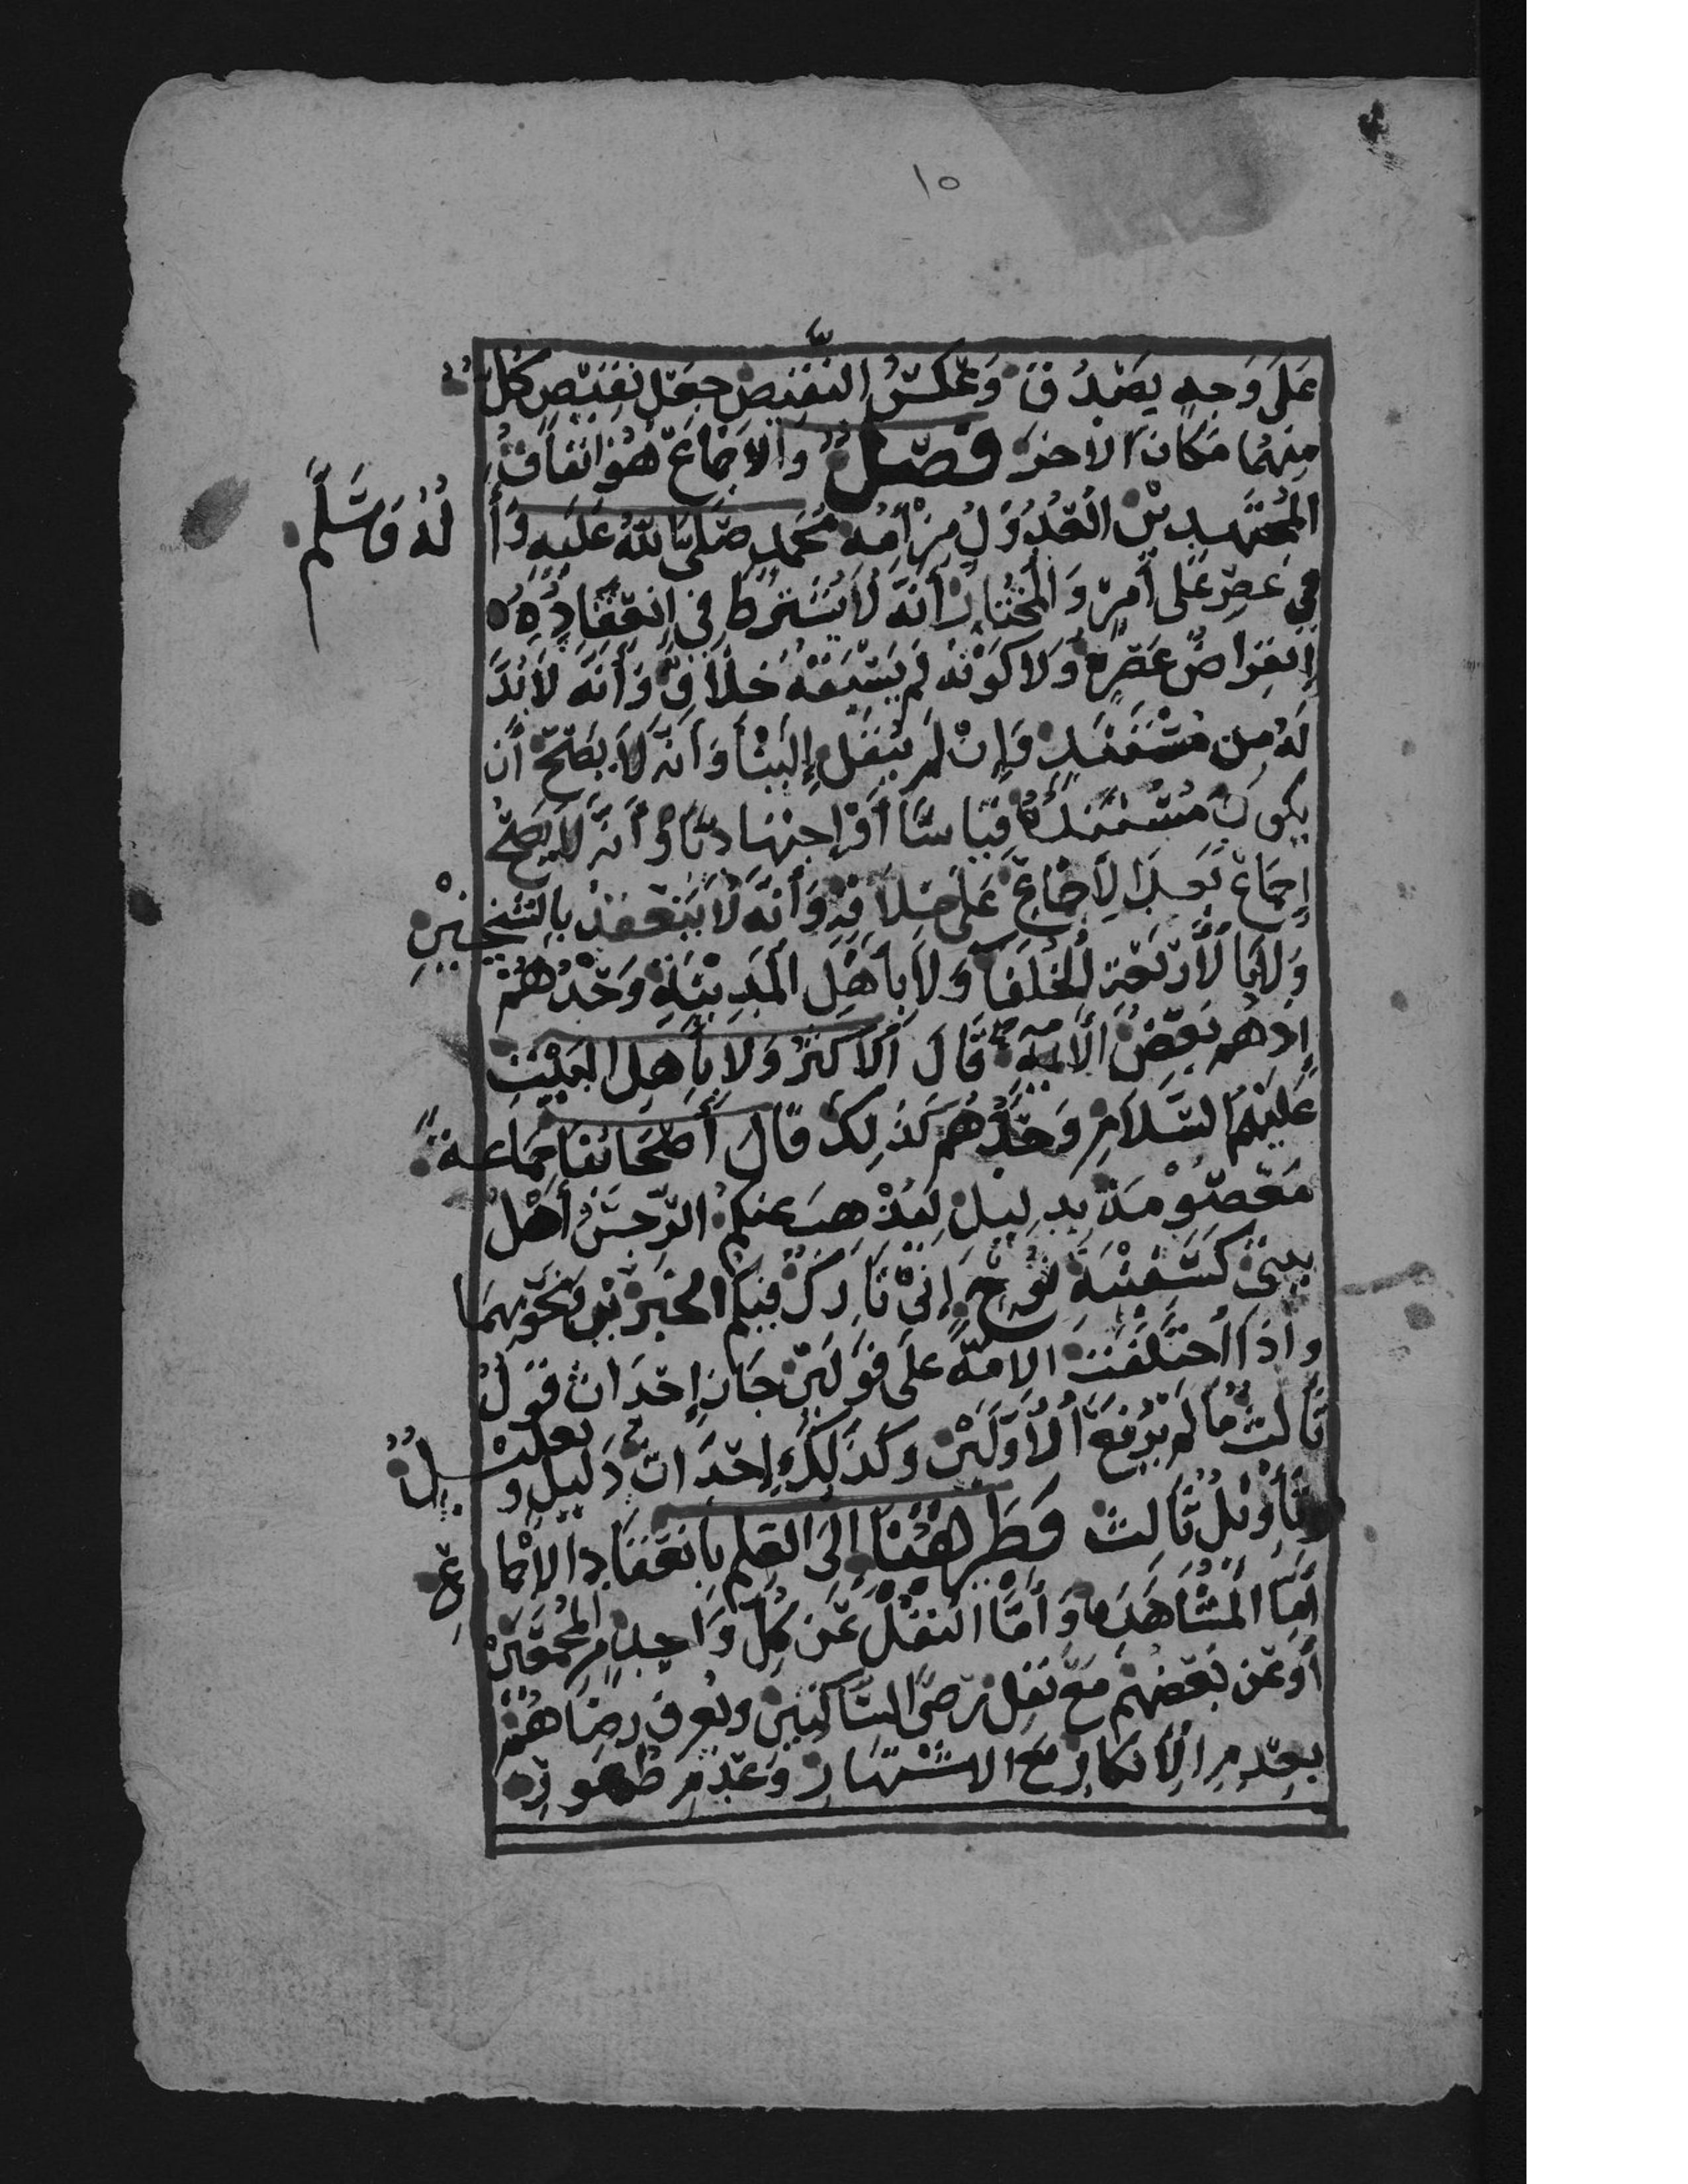 ١٥
عَلَى وَجهٍ يَصْدُقُ وَعَكْسُ النَّقِيضِ جَعْلُ نَقِيْضِ كُلٍّ
مِنهُمَا مَكَانَ الاَخَرِ فَصْلٌ وَالاِجْمَاعُ هُوَ اتفَاقُ
المُجْتَهِدِيْنَ الْعُدُوْلِ مِنْ أُمةِ مُحَمدٍ صَلَّى اللهُ عَلَيهِ وَأَلهُ وَسَلَّم
فِي عَصِرٍ عَلَى أَمرٍ وَالْمُخْتَارُ أَنهُ لَا يُشْتَرَطُ فِي اِنعِقَادِهِ
اِنْقِرَاضُ عَصْرِهِ وَلَا كَوْنُهُ لَمْ يَسْبِقْهُ خِلَافٌ وَأَنَّهُ لَا بُدَّ
لَهُ مِن مُسْتَنَدٍ وَإِنْ لَمْ يُنْقَلْ إِلَيْنَا وَأَنَّهُ لَا يَصِحُّ أَن
يَكُونَ مُسْتَنَدُهُ قِيَاسًا أَوْ اجتِهَادًا وَأَنَّهُ لَا يَصِحُّ
إِجمَاعٌ بَعدَ الْأِجْمَاعِ عَلَى خِلَافِهِ وَأَنَّهُ لَا يَنْعَقِدُ بِالشَّيْخَيْنِ
وَلَا بِالْأَرْبَعَةِ الْخُلَفَا وَلَا بِأَهْلِ الْمَدِيْنَةِ وَحْدَهُمْ
اِذ هُم بَعْضُ الْأُمَّةِ قَالَ الْأَكثَرُ وَلَا بِأَهلِ الْبَيْتِ
عَلَيْهِمُ السَّلَامِ وَحْدَهُم كَذَلِكَ قَالَ أَصْحَابُنَا جَمَاعَة
مَعْصُوْمَة بِدَلِيْلِ لِيُذْهِبَ عَنكُمُ الرِّجْسَ أَهْلُ
بيتي كَسَفِيْنَةِ نُوْحٍ إِنِّيْ تَارِكٌ فِيْكُم الخَبَرَيْنِ وَنَحْوِهِمَا
وَاِذَا اخْتَلَفَت الامَّة عَلَى قَوْلَيْنِ جَازَ إِحْدَاث قَوْلٍ
ثَالِثٍ مَا لَم يَرْفَعَ الْأَوَّلَيْنِ وَكَذَلِكَ إِحْدَاث دَلِيْلٍ وتَعْلِيْلٍ
وَتَأْوِيْلٍ ثَالِثٍ وَطَرِيْقُنَا اِلَى العِلْمِ بِانْعِقَادِ الْاِجْمَاعِ
أَمَّا الْمُشَاهَدَة وَأَمَّا النقْلُ عَنْ كُلِّ وَاحِدٍ مِنَ الْمُجْمِعِيْنَ
أَوْ عَنْ بَعْضِهِمْ مَعَ نَقْلِ رِضَى السَّاكتِينَ وَيُعْرَف رِضَاهُمْ
بِعَدمِ الْأِنكَارِ مَعَ الاشْتِهَارِ وَعَدَمِ ظهُورِ